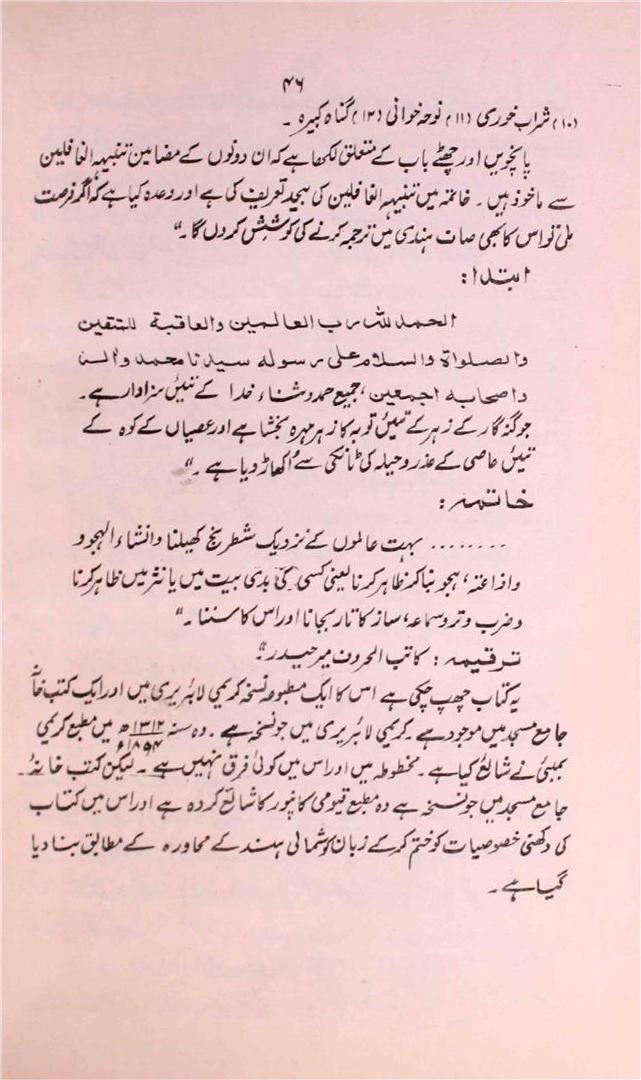 ۴۶
(۱۰) شراب خوری (۱۱) نوحہ خوانی (۱۲) گناہ کبیرہ ۔
پانچویں اور چھٹے باب کے متعلق لکھا ہے کہ ان دونوں کے مضامین تنبیہ الغافلین
سے ماخوذ ہیں ۔ خاتمہ میں تنبیہ الغافلین کی بیحد تعریف کی ہے اور وعدہ کیا ہے کہ اگر فرصت
ملی تو اس کا بھی صاف ہندی میں ترجمہ کرنے کی کوشش کروں گا۔"
ابتدا :
الحمد للہ رب العالمین والعاقبۃ للمتقین
والصلواۃ والسلام علی رسولہ سیدنا محمد والہ
واصحابہ اجمعین ، جمیع حمد و ثناء خدا کے تئیں سزاوار ہے۔
جو گنہ گار کے زہر کے تئیں توبہ کا زہر مہرہ بخشا ہے اور عصیاں کے کوہ کے
تئیں عاصی کے عذر و حیلہ کی ٹانکی سے اُکھاڑ دیا ہے ۔"
خاتمہ :
........ بہت عالموں کے نزدیک شطرنج کھیلنا وانشاء الہجو و
واذاعتہ ، ہجو بنا کر ظاہر کرنا یعنی کسی کی بدی بیت میں یا نثر میں ظاہر کرنا
وضرب وتر وسماعہ ، ساز کا تار بجانا اور اس کا سننا ۔"
ترقیمہ : کاتب الحروف میر حیدر۔"
یہ کتاب چھپ چکی ہے اس کا ایک مطبوعہ نسخہ کریمی لائبریری میں اور ایک کتب خانہ
جامع مسجد میں موجود ہے ۔ کریمی لائبریری میں جو نسخہ ہے ۔ وہ سنہ ۱۳۱۲ھ / ۱۸۹۴ء میں مطبع کریمی
بمبئی نے شائع کیا ہے ۔ مخطوطہ میں اور اس میں کوئی فرق نہیں ہے ۔ لیکن کتب خانہ
جامع مسجد میں جو نسخہ ہے وہ مطبع قیومی کانپور کا شائع کردہ ہے اور اس میں کتاب
کی دکھنی خصوصیات کو ختم کرکے زبان کو شمالی ہند کے محاورہ کے مطابق بنا دیا
گیا ہے ۔